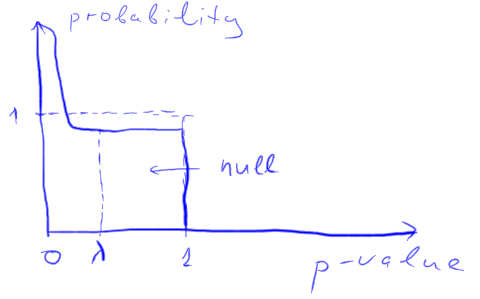 probability
1
null
0 λ 1
p-value